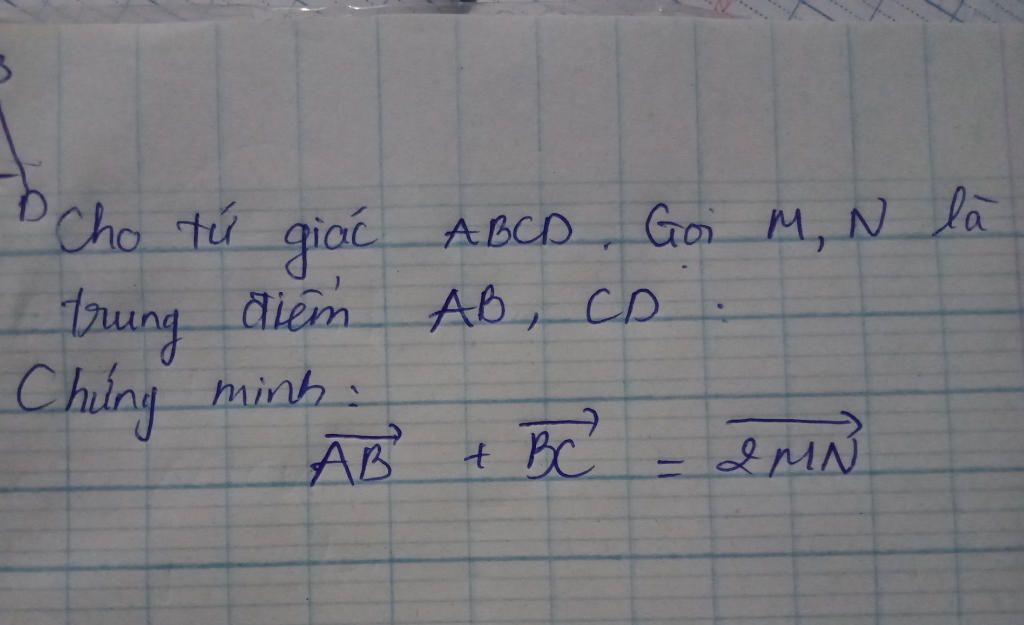 D
Cho tứ giác ABCD. Gọi M, N là
trung điểm AB, CD :
Chứng minh:
\overrightarrow{AB} + \overrightarrow{BC} = \overrightarrow{2MN}